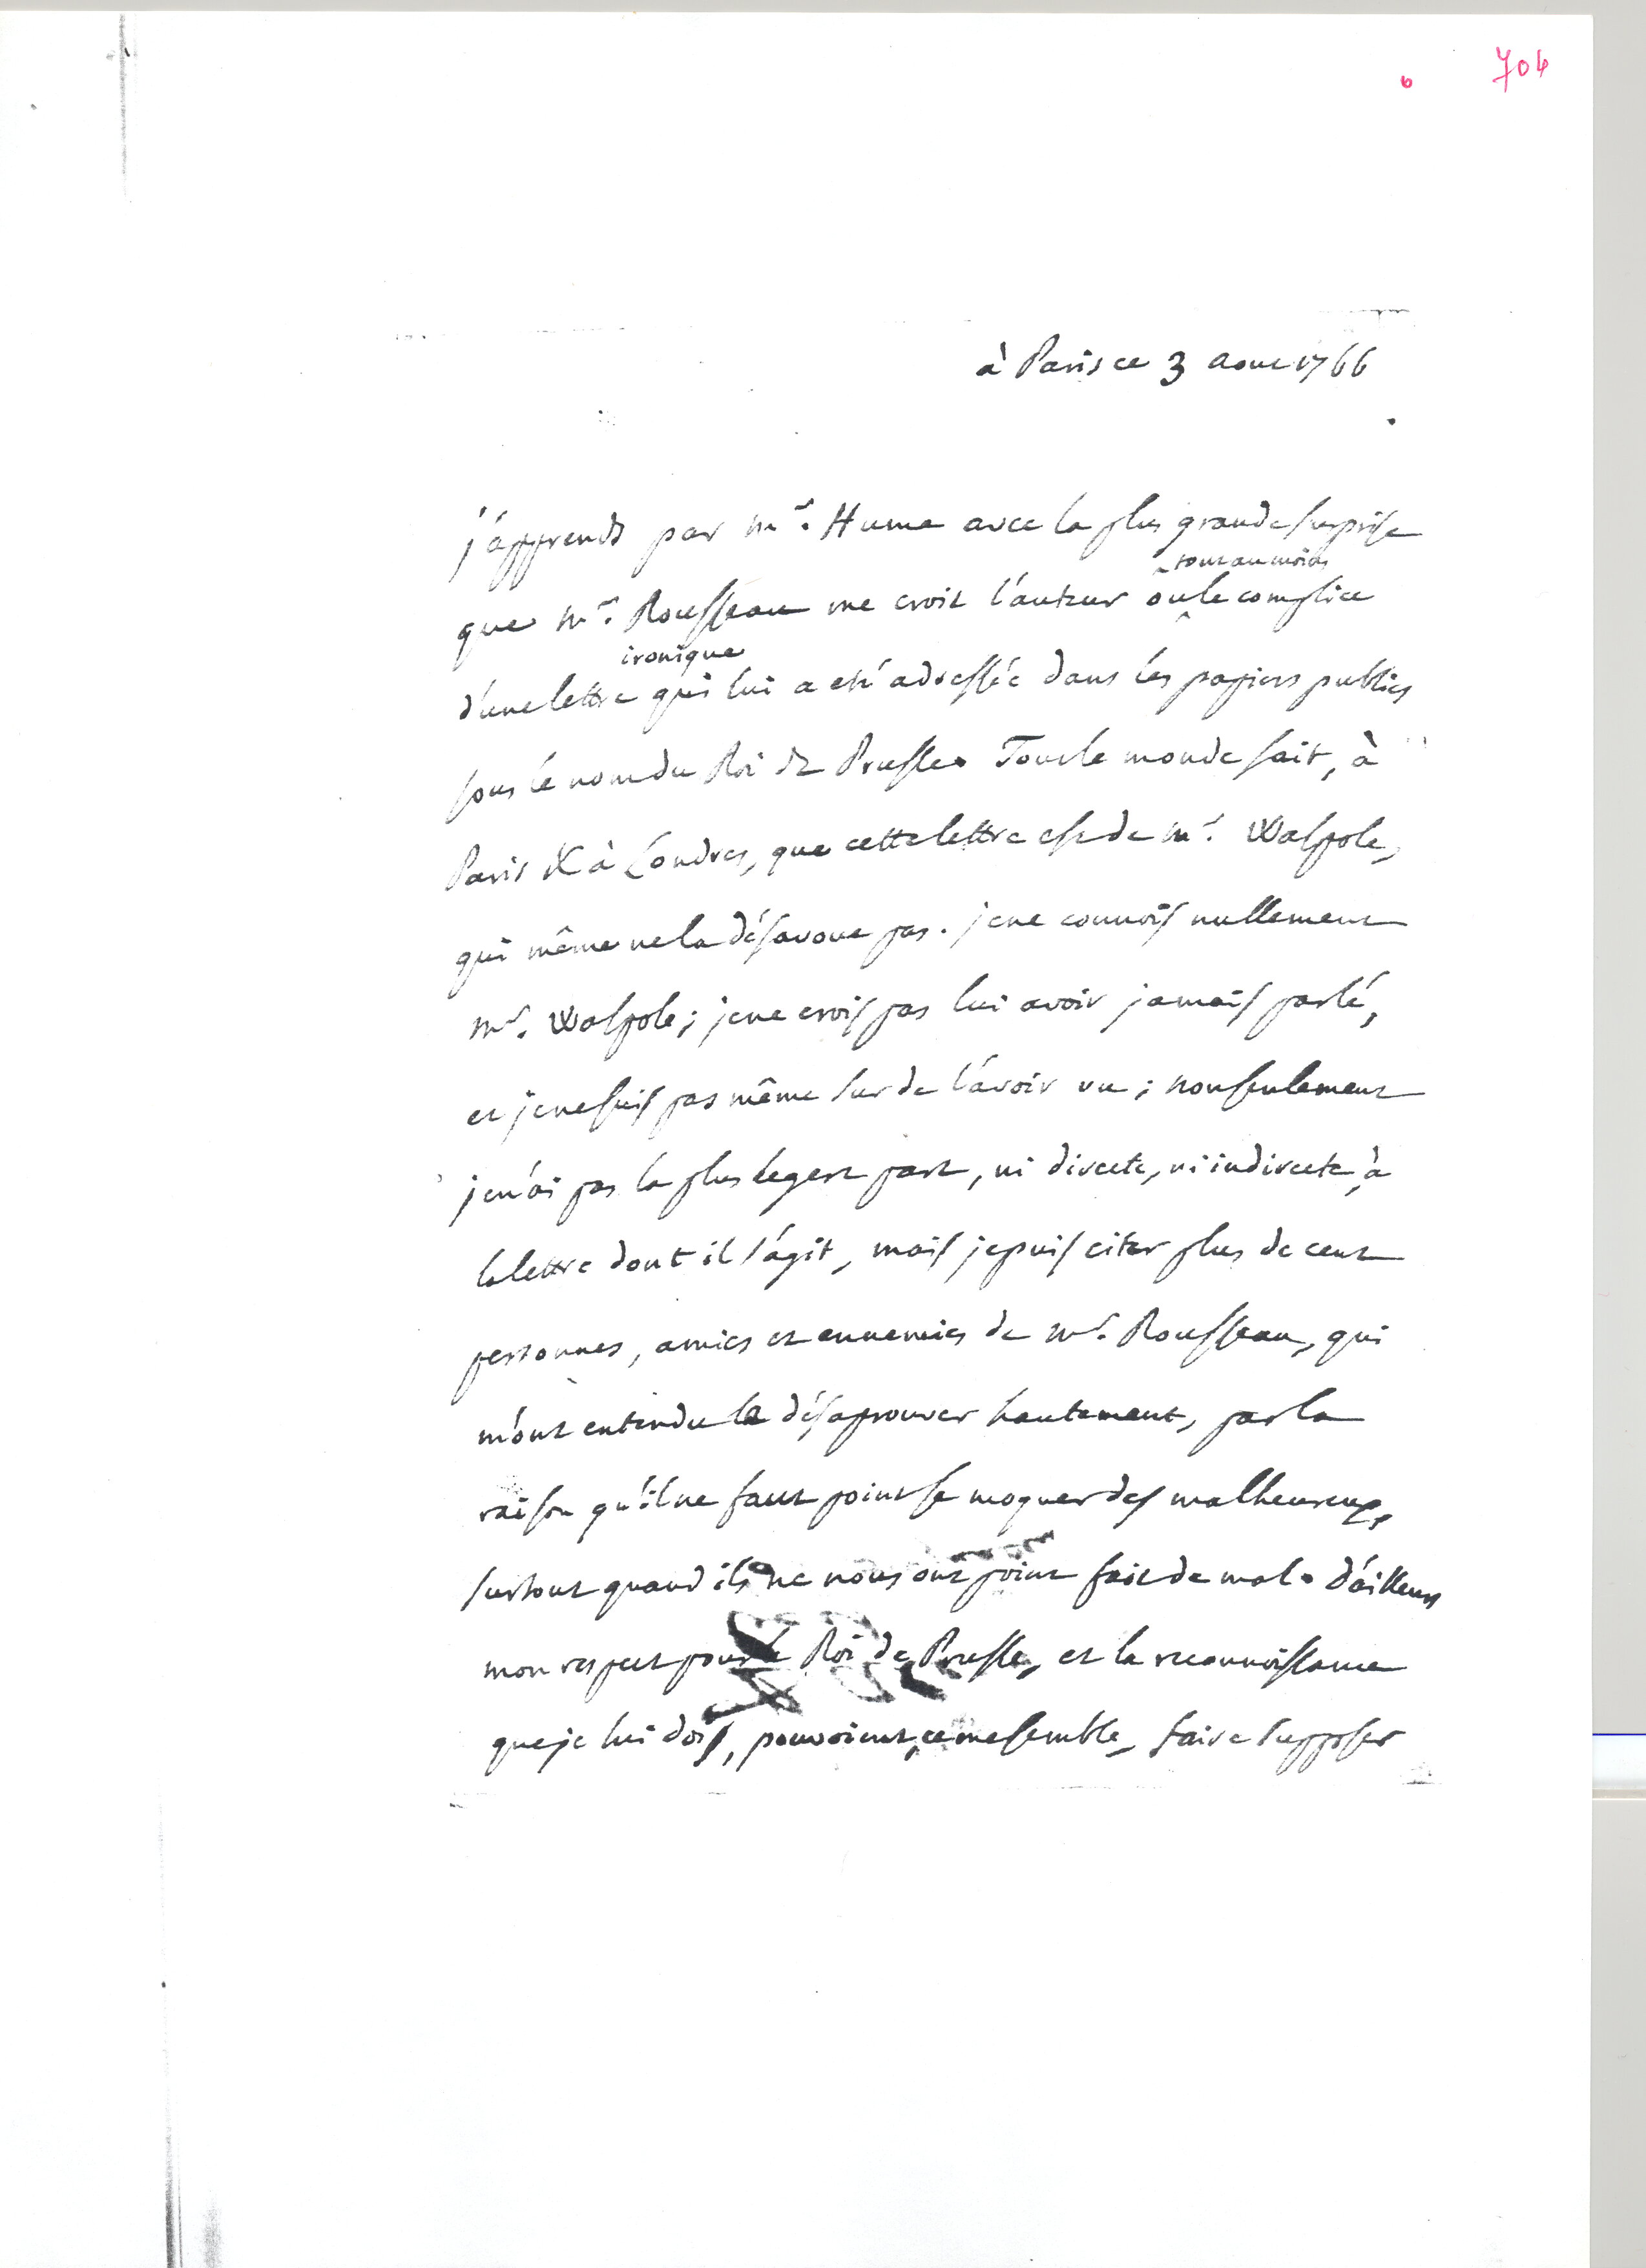 704
à Paris ce 3 aout 1766
j'apprends par mr. Hume avec la plus grande surprise
tout au moins
que mr. Rousseau me croit l'auteur ou le complice
ironique
d'une lettre qui lui a eté adressée dans les papiers publics
sous le nom du Roi de Prusse. Tout le monde sait, à
Paris & à Londres, que cette lettre est de mr. Walpole,
qui même ne la désavoue pas. je ne connois nullement
mr. Walpole; je ne crois pas lui avoir jamais parlé,
et je ne suis pas même sur de l'avoir vu; non seulement
je n'ai pas la plus legere part, ni directe, ni indirecte, à
la lettre dont il s'agit, mais je puis citer plus de cent
personnes, amies et ennemies de mr. Rousseau, qui
m'ont entendu la désaprouver hautement, par la
raison qu'il ne faut point se moquer des malheureux,
surtout quand ils ne nous ont point fait de mal. d'ailleurs
mon respect pour le Roi de Prusse, et la reconnoissance
que je lui dois, pouvoient, ce me semble, faire supposer